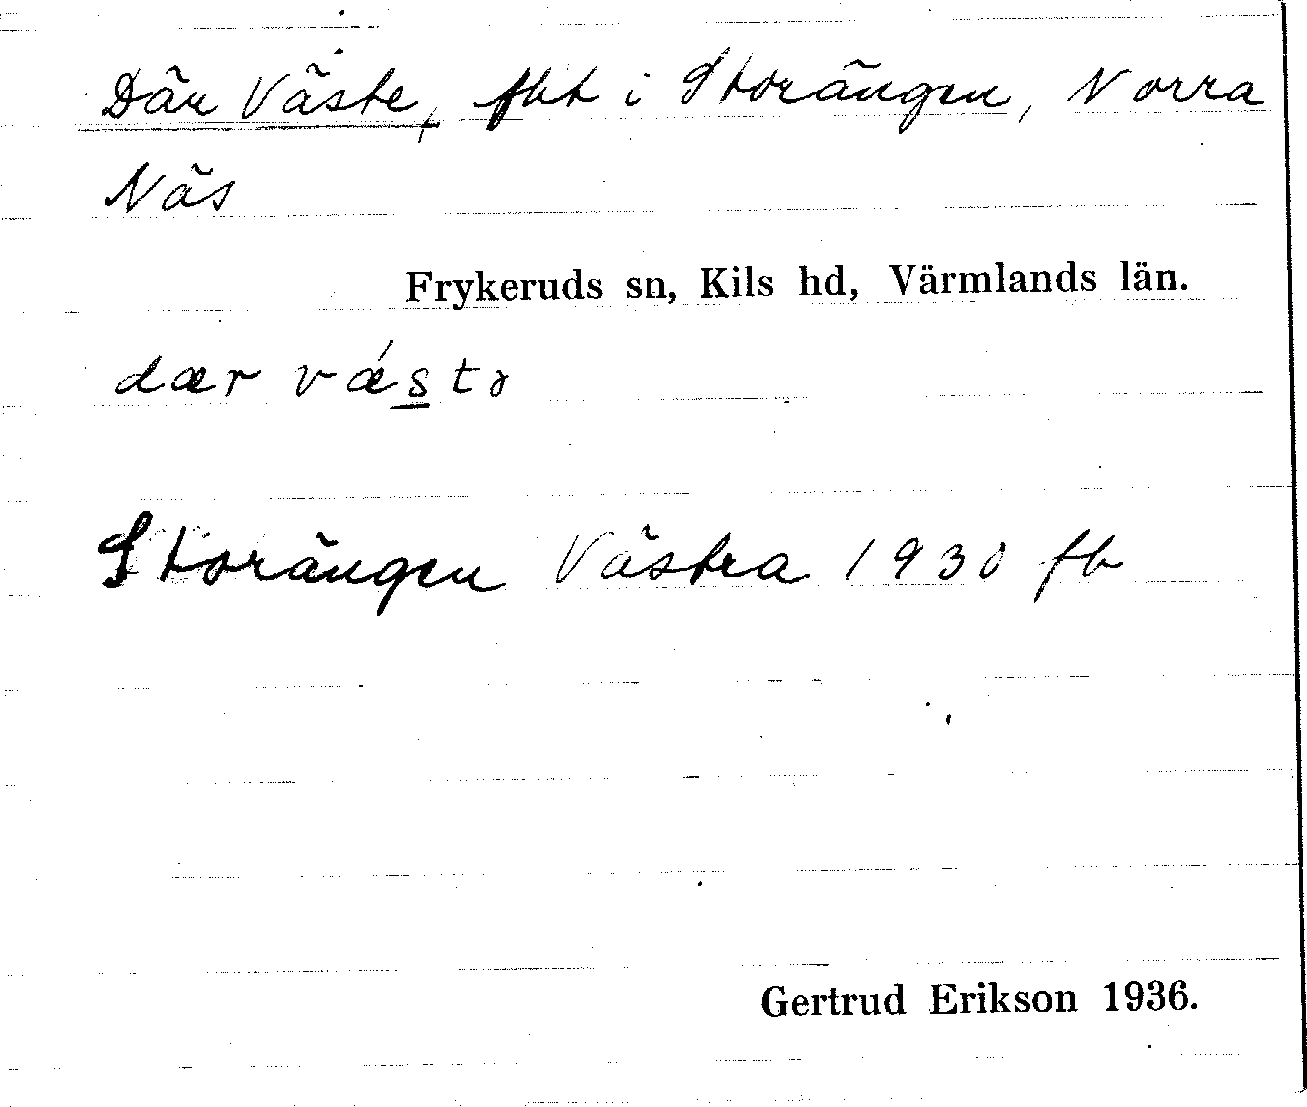 Där Väste, fbt i Storängen, Norra
Näs
Frykeruds sn, Kils hd, Värmlands län.
dær vǽstə
Storängen Västra 1930 fb
Gertrud Erikson 1936.